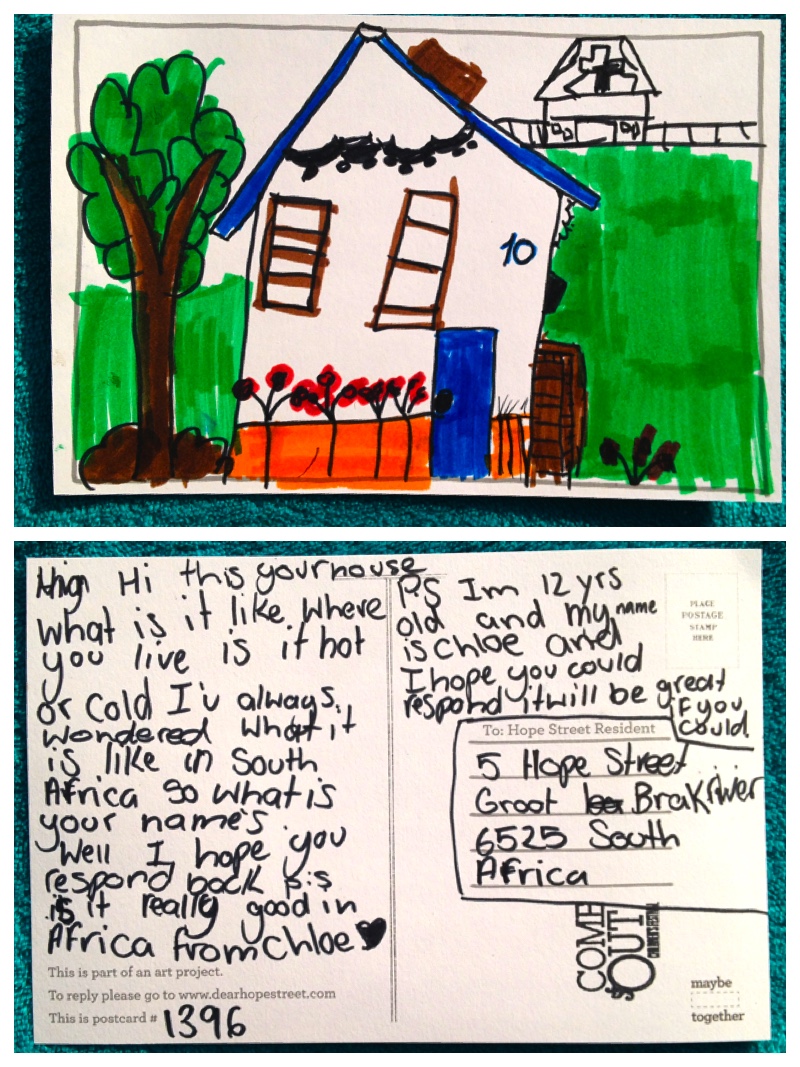 10
Hi this your house
what is it like. Where
you live is it hot
or cold I'v always.
wondered what it
is like in South
Africa so what is
your name's.
Well I hope you
respond back p.s
is it really good in
Africa from chloe
This is part of an art project.
To reply please go to www.dearhopestreet.com
This is postcard # 1396
P.S Im 12 yrs
old and my name
is chloe and
I hope you could
respond it will be great
if you
could.
PLACE
POSTAGE
STAMP
HERE
To: Hope Street Resident
5 Hope Street
Groot Brakrivier
6525 South
Africa
COME
OUT
CHILDREN'S FESTIVAL
maybe
together